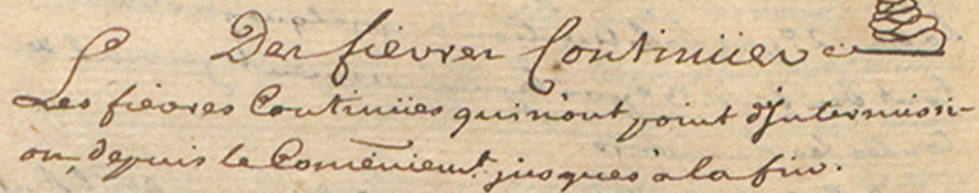 Des fievres Continües
Les fievres Continües qui n'ont point d'Intermissi-
on, depuis le Comēnicem.t jusques a la fin.